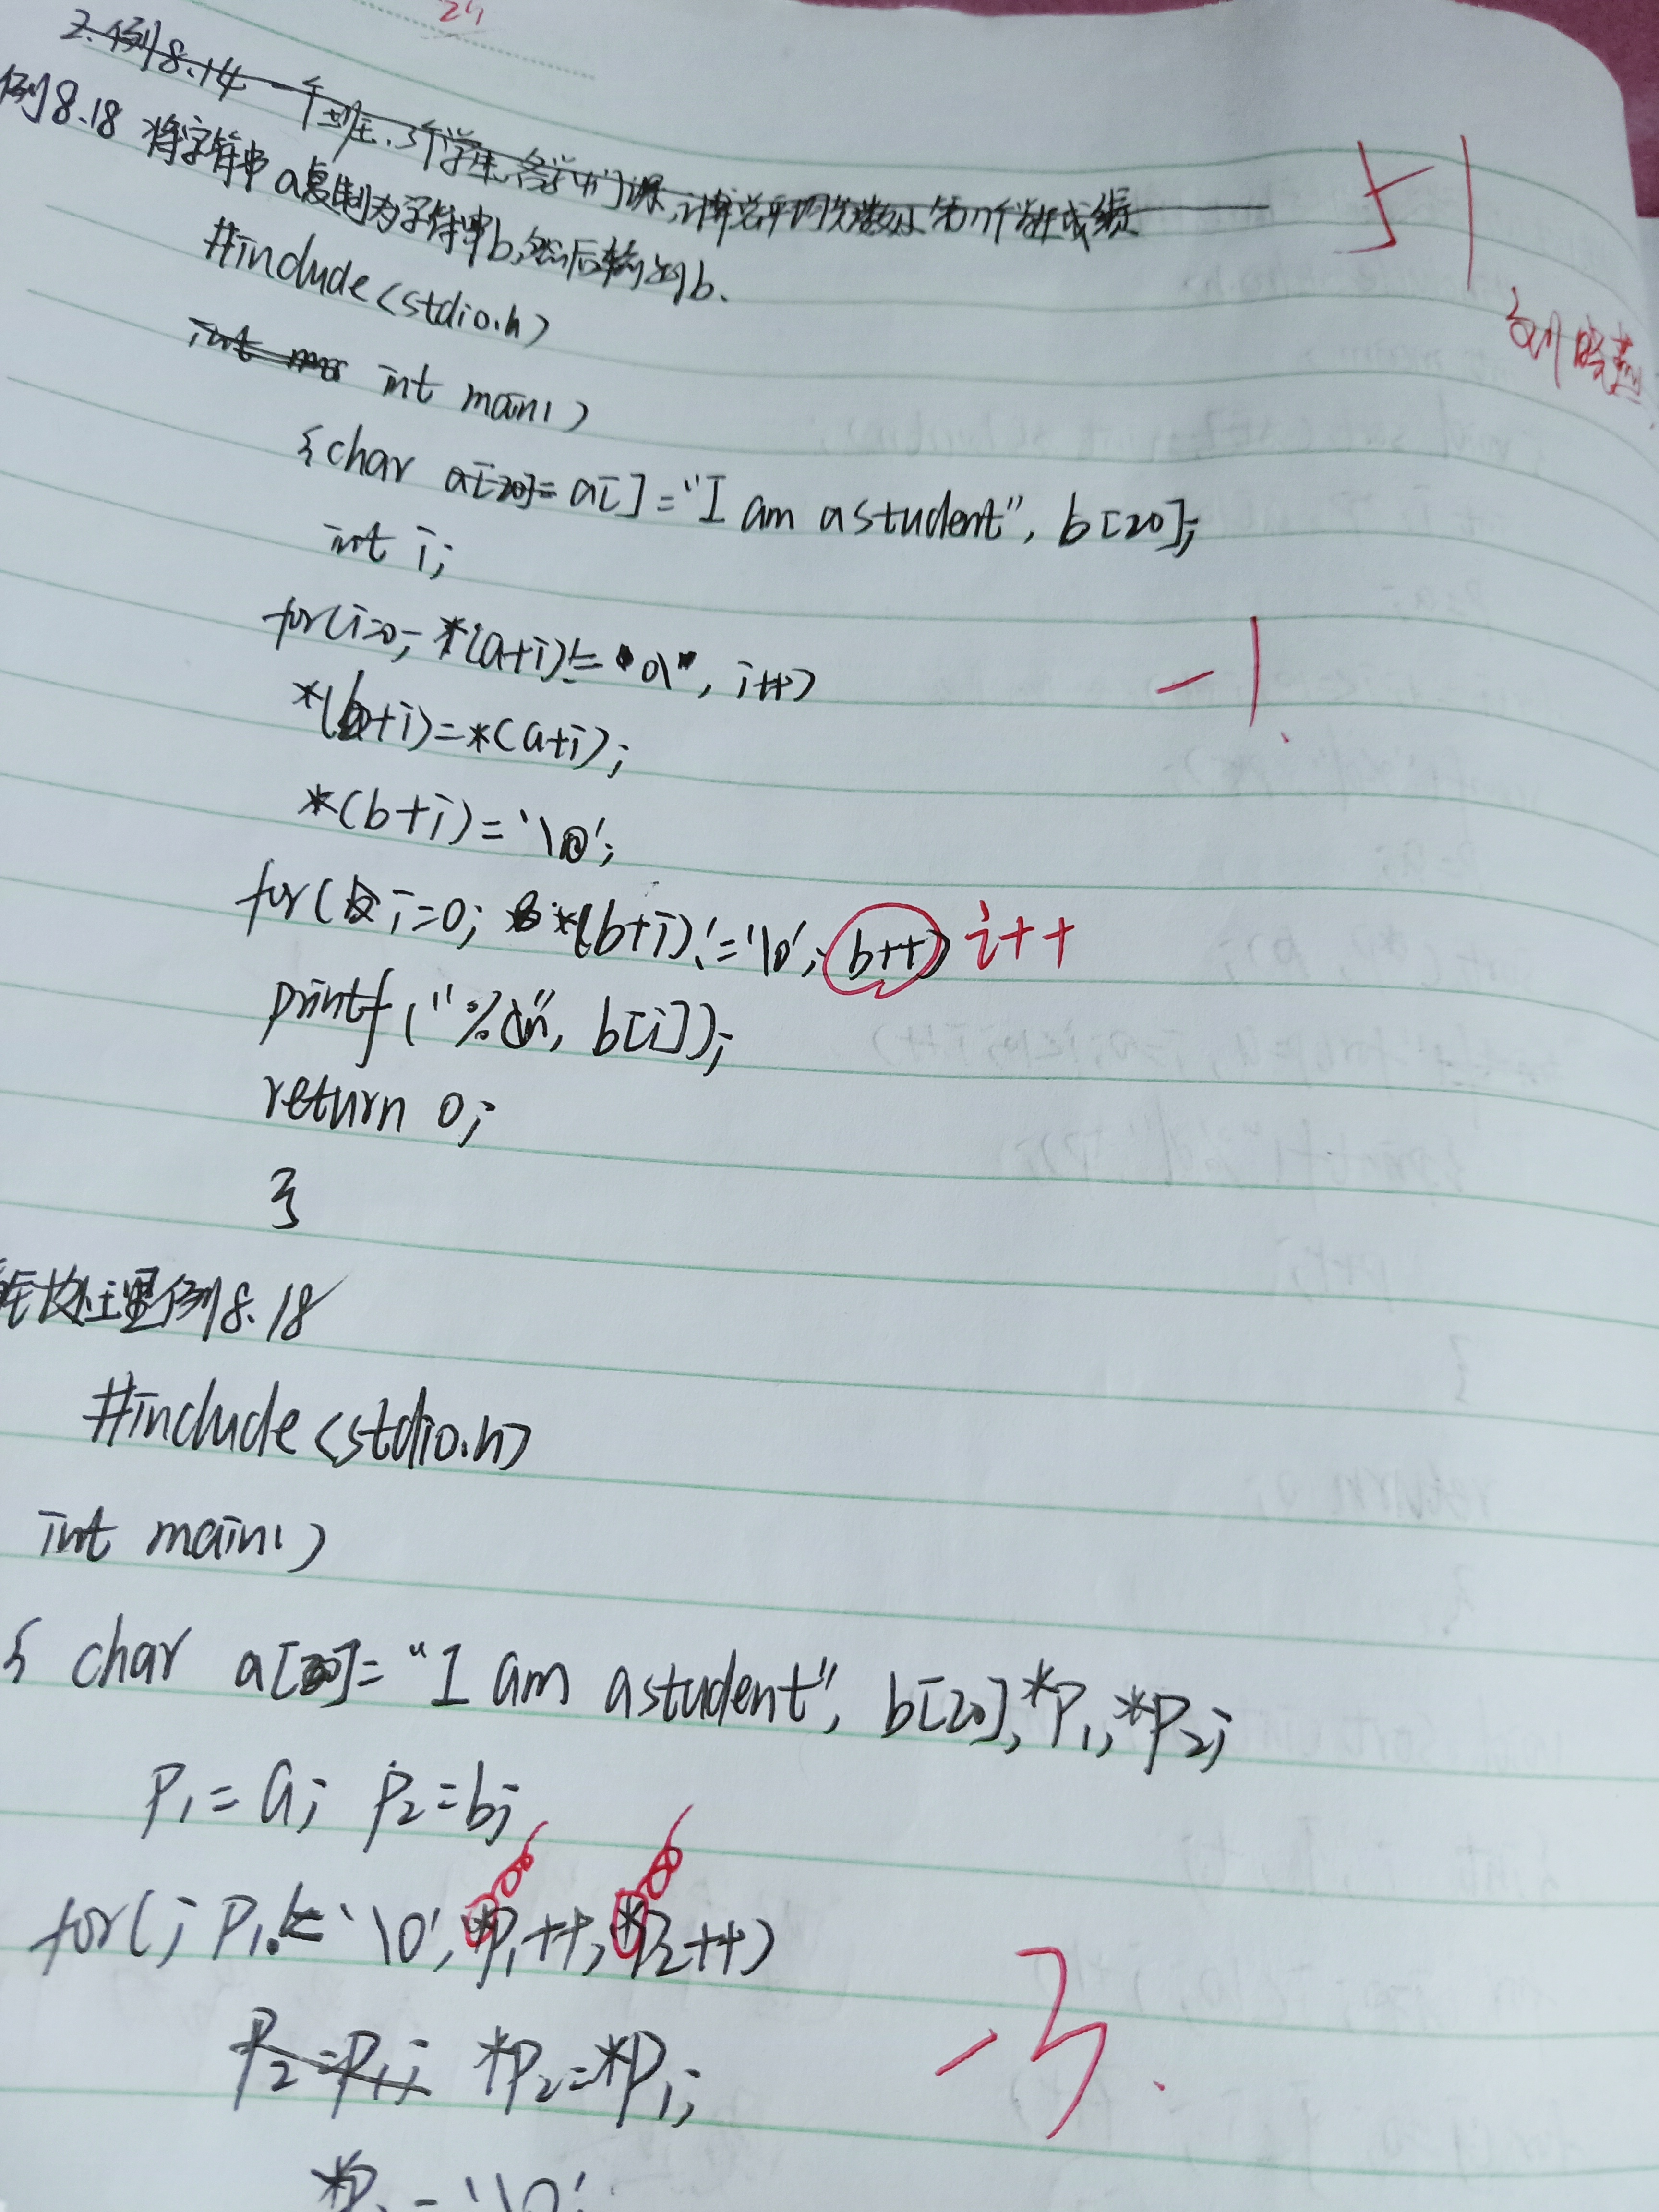 24
2.例8.14 一个班,3个学生,各学4门课,计算总平均分数以及第n个学生成绩
51
例8.18 将字符串a复制为字符串b,然后输出b.
#include<stdio.h>
int main()
{char a[20]= a[]="I am a student", b[20];
int i;
for(i=0; *(a+i)!='\0', i++)
-1.
*(b+i)=*(a+i);
*(b+i)='\0';
for( i=0; *(b+i)!='\0'; b++) i++
printf("%c\n", b[i]);
return 0;
}
处理例8.18
#include<stdio.h>
int main()
{ char a[20]="I am a student", b[20],*P1,*P2;
P1=a; P2=b;
for(; P1!='\0', *P1++, *P2++)
P2=P1; *P2=*P1;
-3.
='\0'